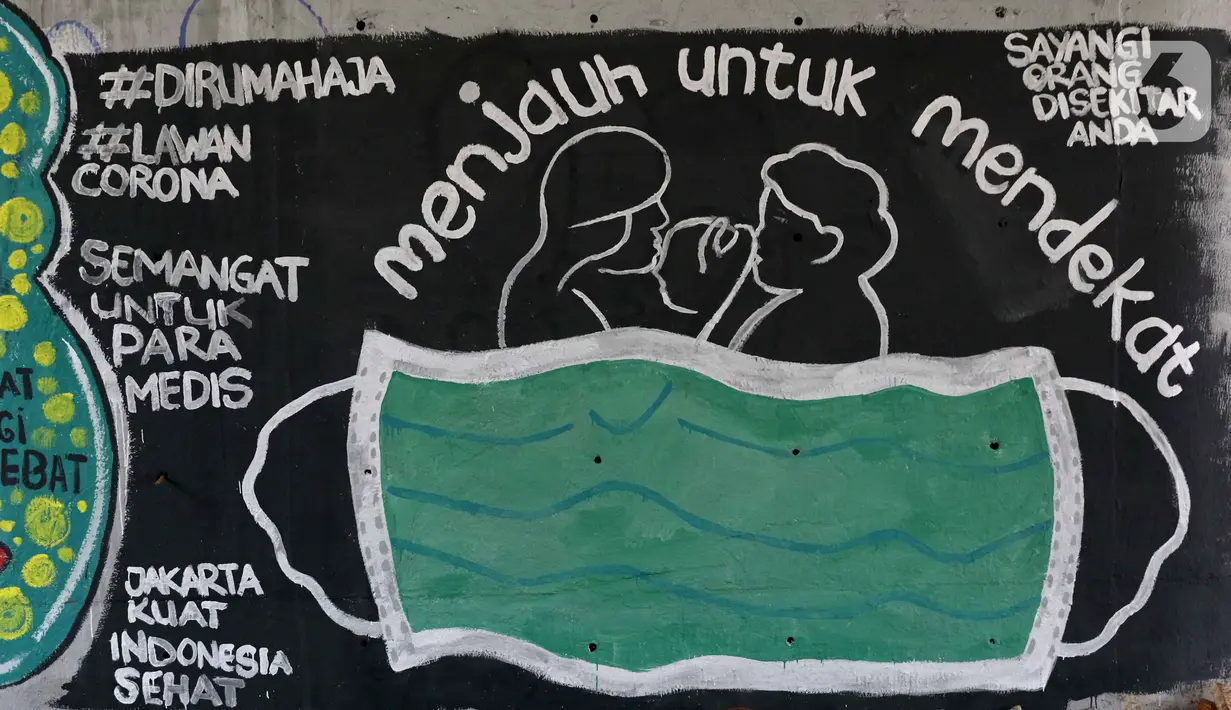 #DIRUMAHAJA
#LAWAN
CORONA
SEMANGAT
UNTUK
PARA
MEDIS
JAKARTA
KUAT
INDONESIA
SEHAT
menjauh untuk mendekat
SAYANGI
ORANG
DISEKITAR
ANDA
6